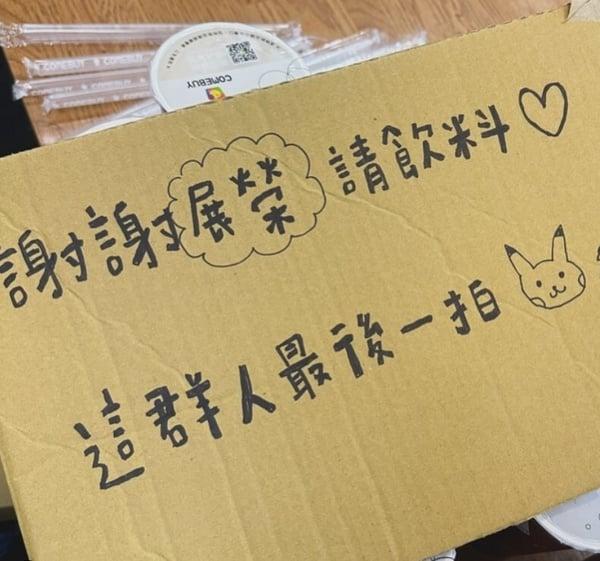 COMEBUY
COMEBUY
謝謝展榮請飲料
這群人最後一拍